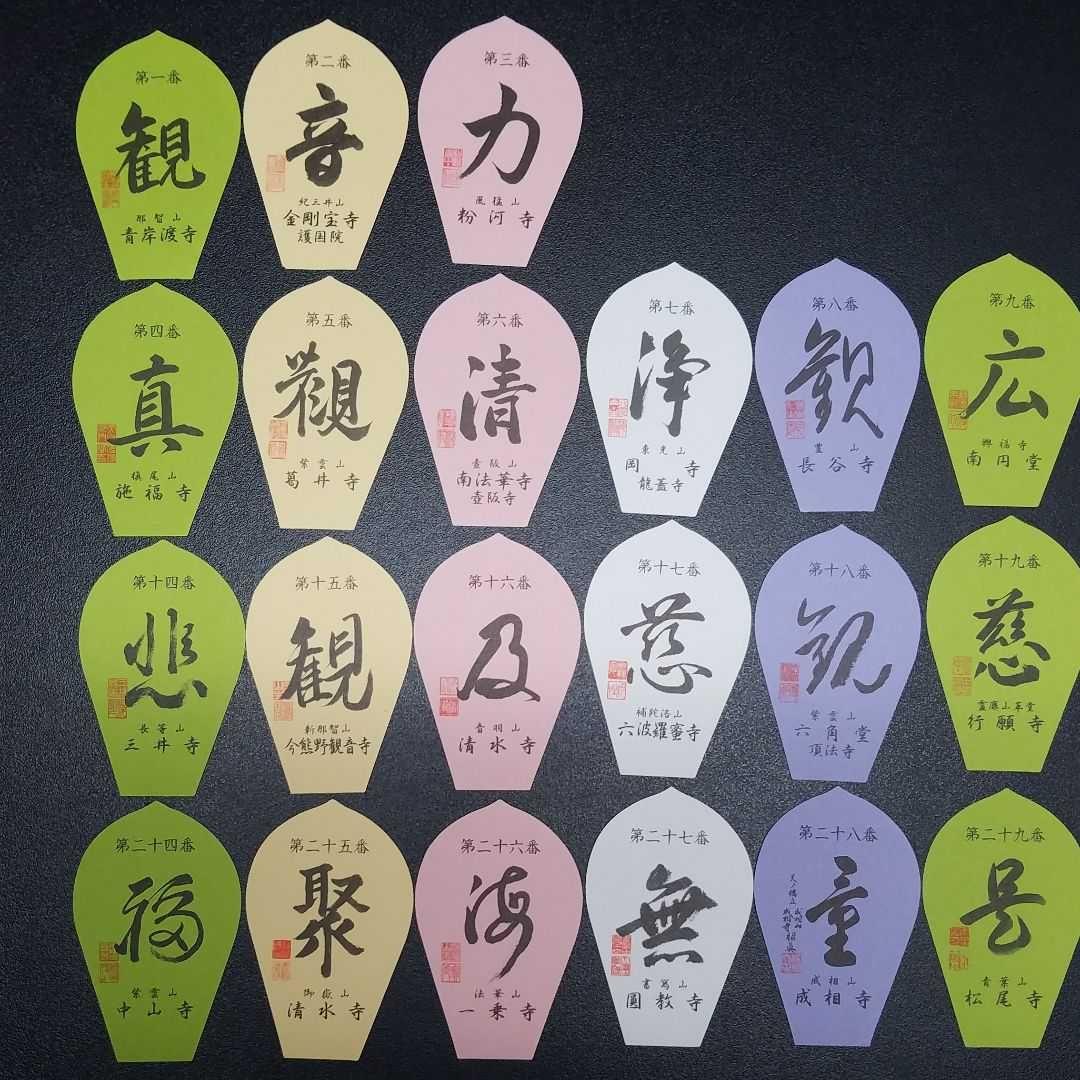 第一番
観
那智山
青岸渡寺
第二番
音
紀三井山
金剛宝寺
護国院
第三番
力
風猛山
粉河寺
第四番
真
槇尾山
施福寺
第五番
觀
紫雲山
葛井寺
第六番
清
壺阪山
南法華寺
壺阪寺
第七番
浄
東光山
岡寺
龍蓋寺
第八番
観
豊山
長谷寺
第九番
広
興福寺
南円堂
第十四番
悲
長等山
三井寺
第十五番
観
新那智山
今熊野観音寺
第十六番
及
音羽山
清水寺
第十七番
慈
補陀洛山
六波羅蜜寺
第十八番
観
紫雲山
六角堂
頂法寺
第十九番
慈
霊麀山革堂
行願寺
第二十四番
福
紫雲山
中山寺
第二十五番
聚
御嶽山
清水寺
第二十六番
海
法華山
一乗寺
第二十七番
無
書寫山
圓教寺
第二十八番
童
成相山
成相寺
第二十九番
是
青葉山
松尾寺